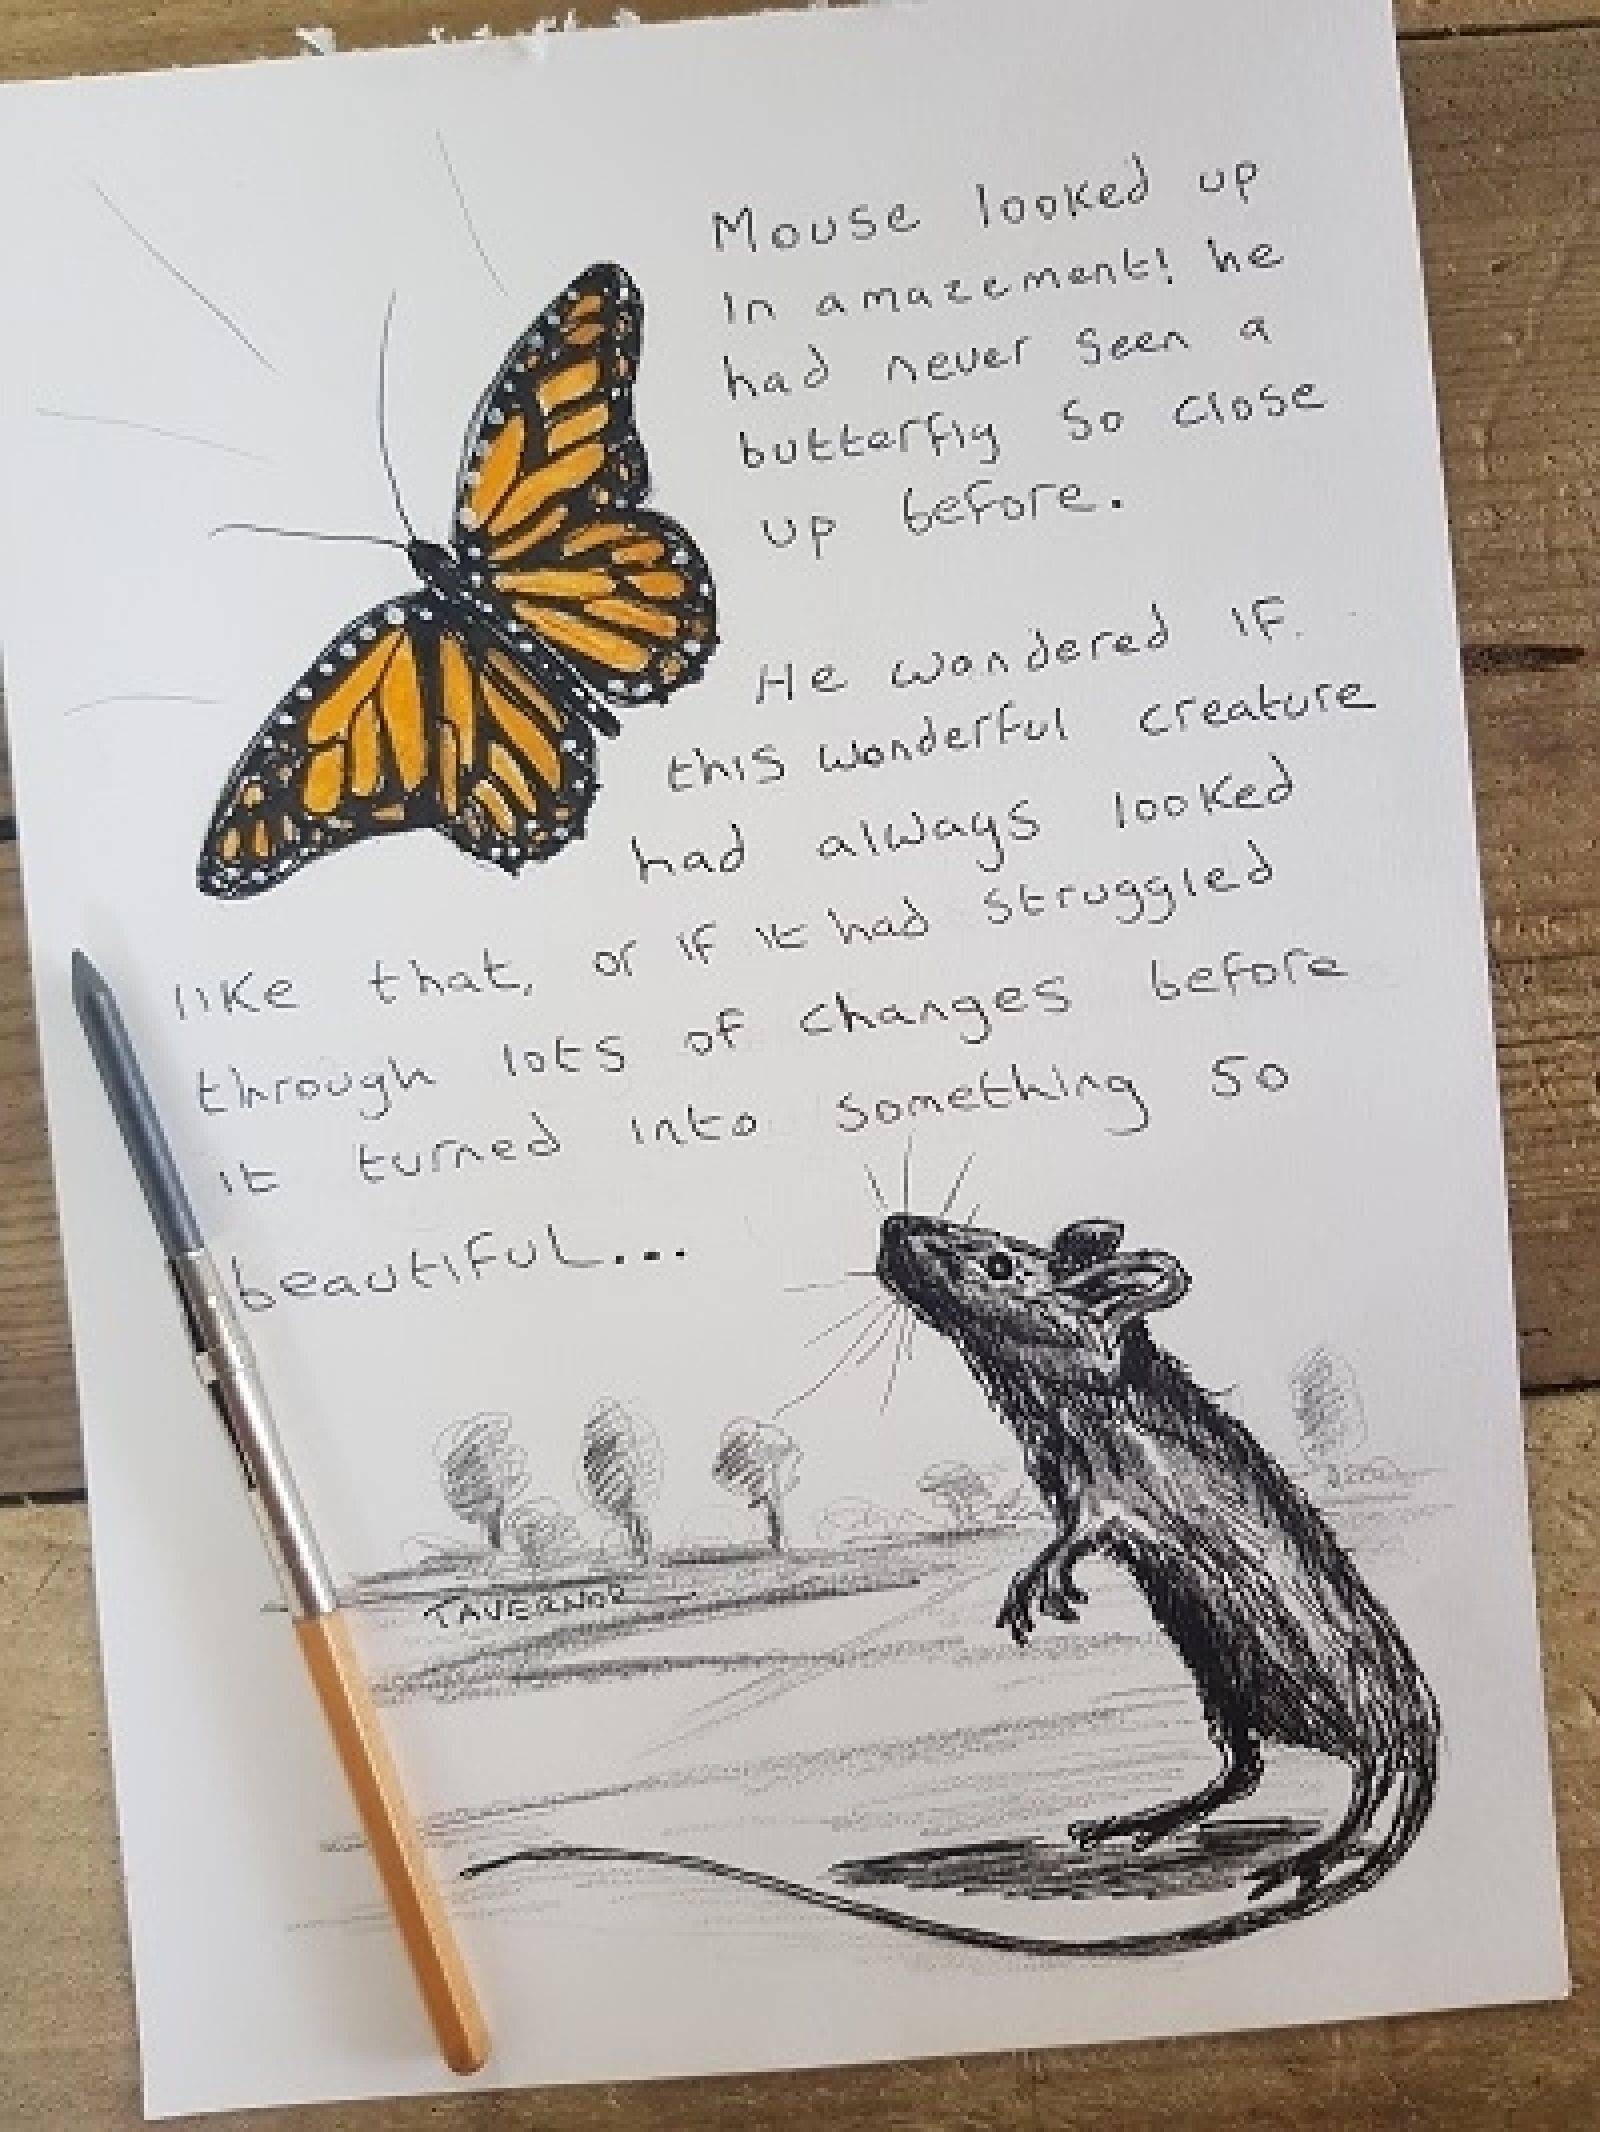 Mouse looked up
in amazement! he
had never seen a
butterfly so close
up before.
He wandered if
this wonderful creature
had always looked
like that, or if it had struggled
through lots of changes before
it turned into something so
beautiful...
TAVERNOR